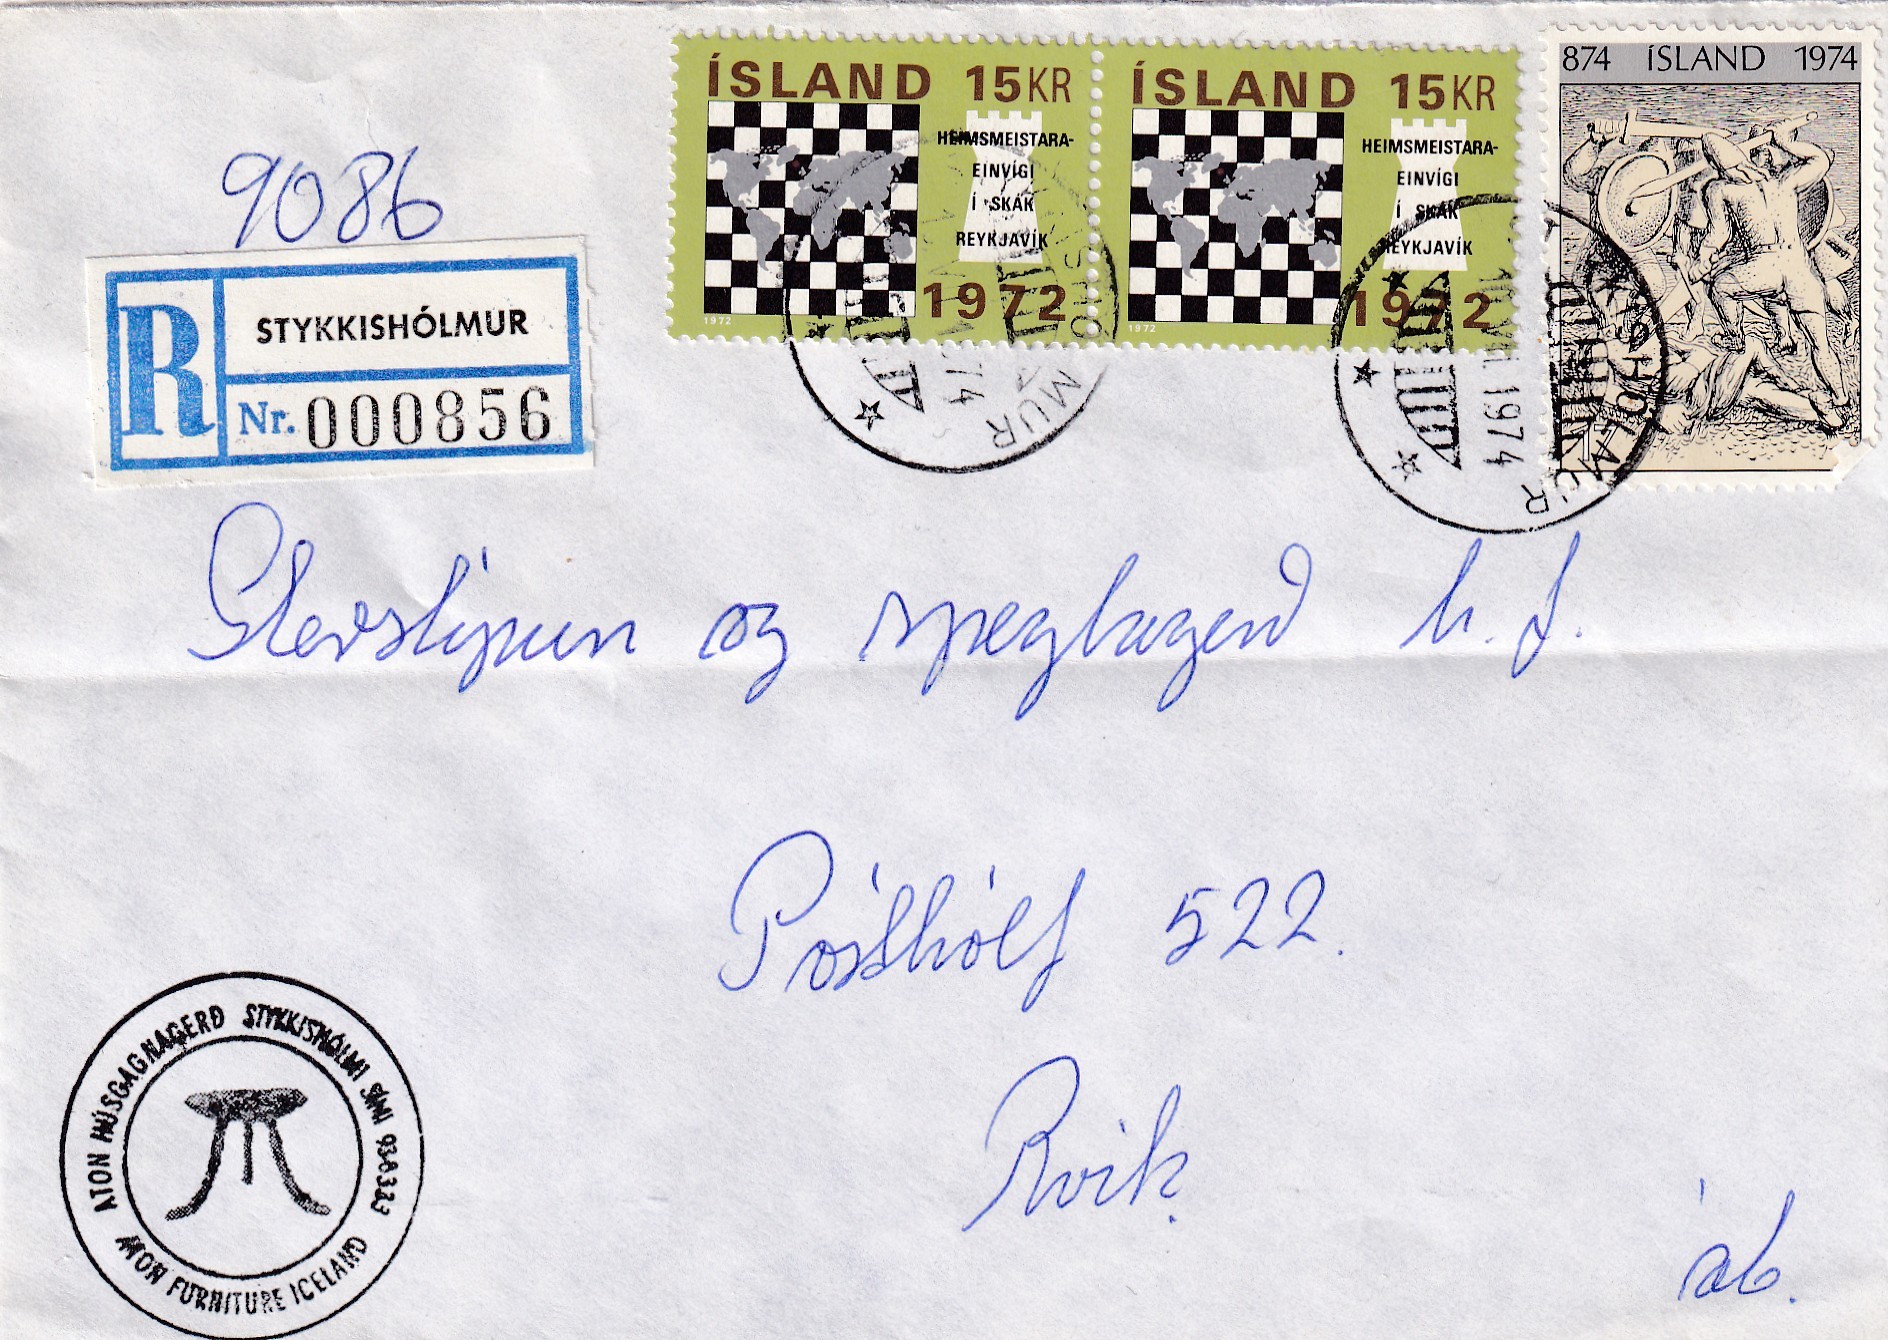 ÍSLAND 15KR
HEIMSMEISTARA-
EINVÍGI
Í SKÁK
REYKJAVÍK
1972
1972
ÍSLAND 15KR
HEIMSMEISTARA-
EINVÍGI
Í SKÁK
REYKJAVÍK
1972
1972
874 ÍSLAND 1974
1974
MUR
1974
HÓLMUR
9086
R STYKKISHÓLMUR
Nr. 000856
Glerslípun og speglagerð h.f.
Pósthólf 522.
Rvík.
áb.
ATON HÚSGAGNAGERÐ STYKKISHÓLMI SÍMI
FURNITURE ICELAND